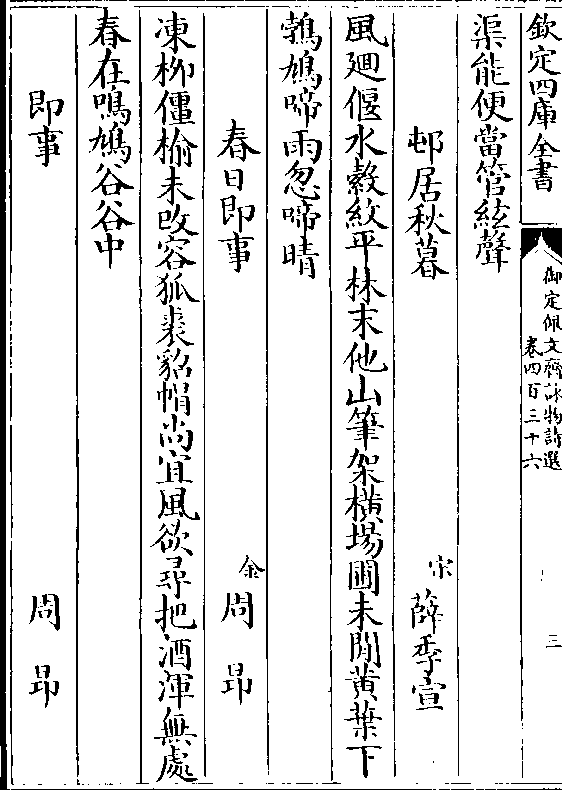 欽定四庫全書
御定佩文齋詠物詩選
卷四百三十六
三
渠能便當管絃聲
邨居秋暮 宋 薛季宣
風廻偃水縠紋平林末他山筆架橫場圃未閒黃葉下
鵓鳩啼雨忽啼晴
春日即事 金 周昂
凍柳僵榆未改容狐裘貂帽尚宜風欲尋把酒渾無處
春在鳴鳩谷谷中
即事 周昂